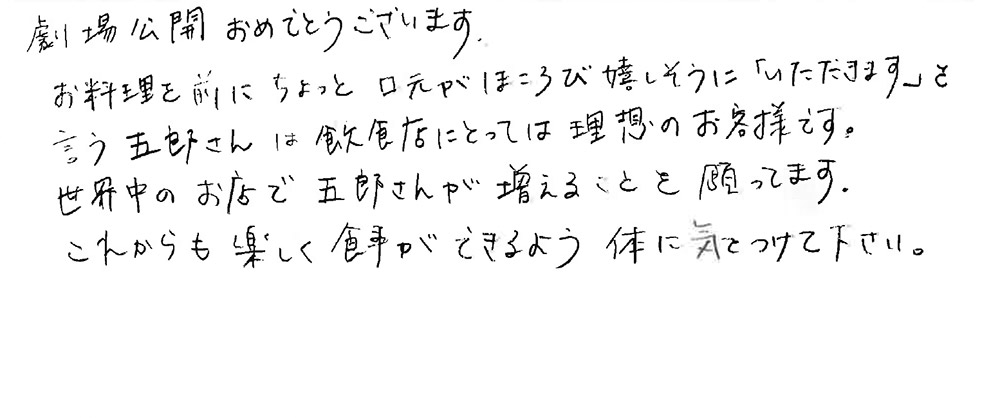 劇場公開おめでとうございます.
お料理を前にちょっと口元がほころび嬉しそうに「いただきます」と
言う五郎さんは飲食店にとっては理想のお客様です。
世界中のお店で五郎さんが増えることを願ってます.
これからも楽しく食事ができるよう体に気をつけて下さい。